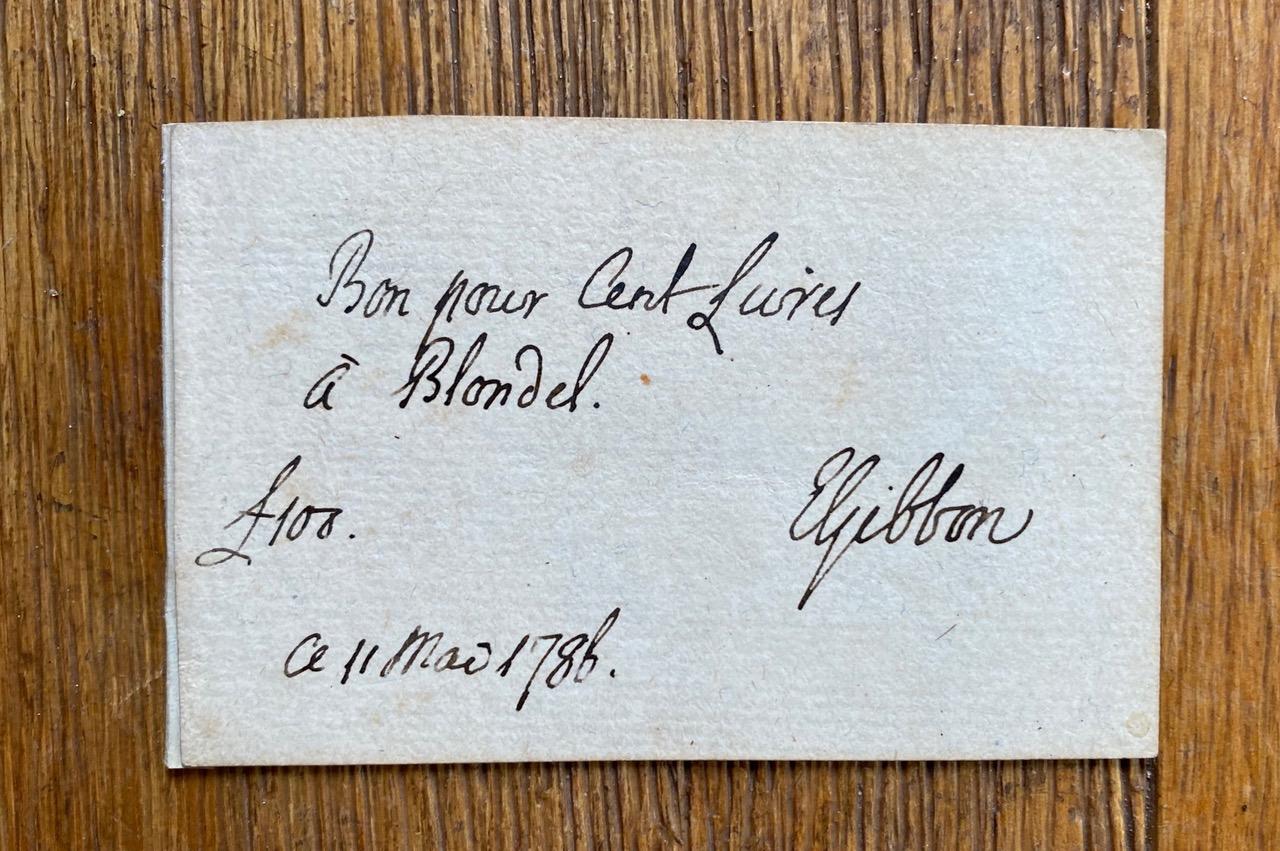 Bon pour Cent Livres
à Blondel.
£100.
EGibbon
ce 11 Mai 1786.